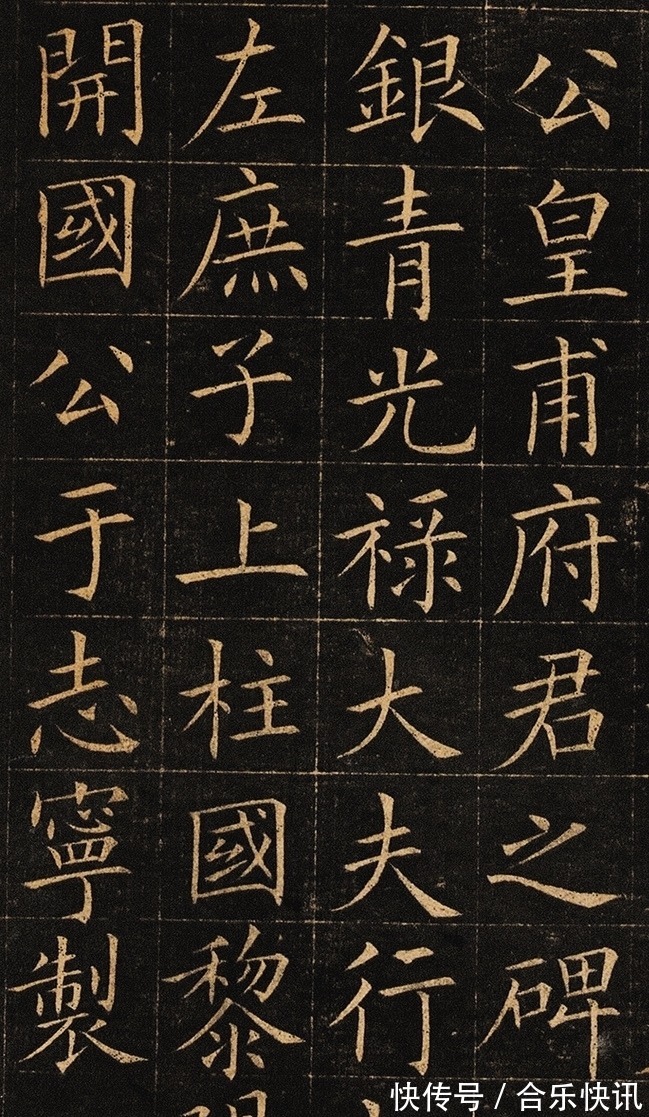 公皇甫府君之碑
銀青光祿大夫行
左庶子上柱國黎
開國公于志寧製
快传号 / 合乐快讯